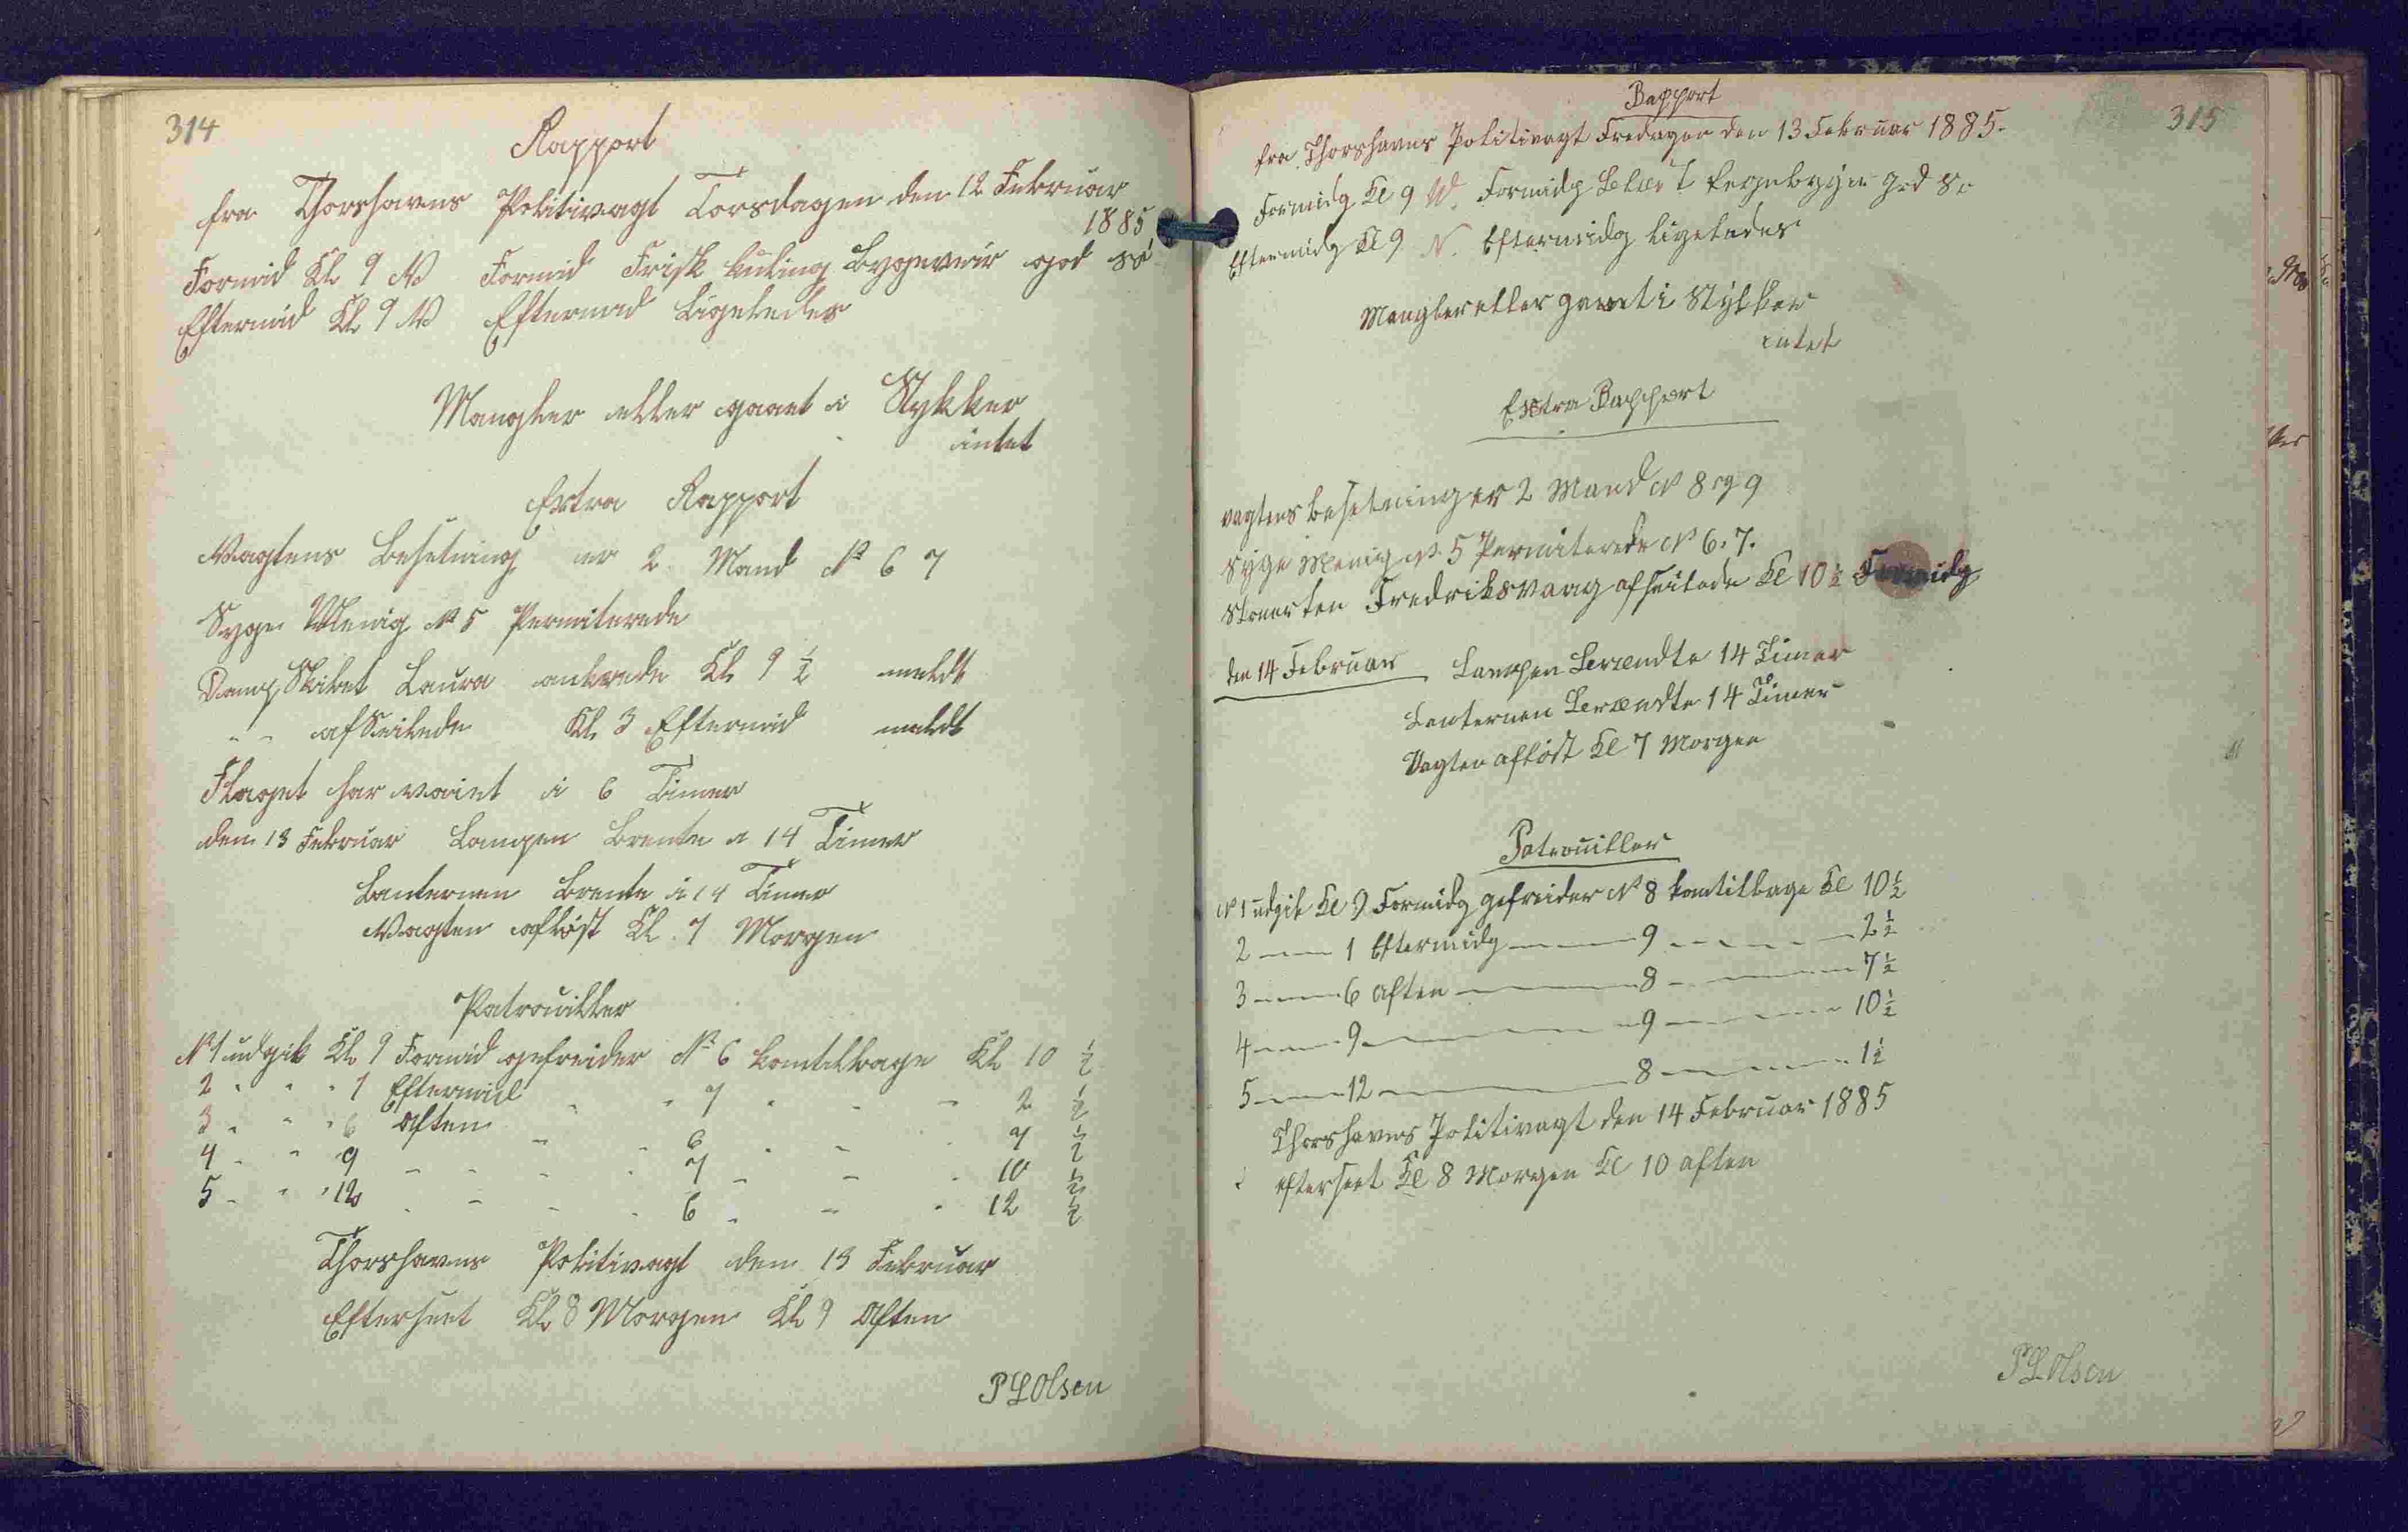 314
Rapport
fra Thorshavns Politivagt Torsdagen den 12 Februar
1885
Formid Kl 9 N Formid Frisk kuling Bygeveir god sø
Eftermid Kl 9 N Eftermid Ligeledes
Mangler eller gaaet i Stykker
intet
Extra Rapport
Vagtens Besetning er 2 Mand No 6 7
Syge Menig No 5 Permiterede
Damp Skibet Laura ankrede Kl 9 ½ meldt
" " afseilede Kl 3 Eftermid meldt
Flaget har vaiet i 6 Timer
den 13 Februar Lampen Brente i 14 Timer
Lanternen Brente i 14 Timer
Vagten afløst Kl 7 Morgen
Patrouiller
No 1 udgik Kl 9 Formid gefreider No 6 komtilbage Kl 10 ½
2 " " " 1 Eftermid " " 7 " " " 2 ½
3 " " " 6 Aften " " 6 " " " 7 ½
4 " " 9 " " " " 7 " " " 10 ½
5 " " " 12 " " " " 6 " " " 12 ½
Thorshavns Politivagt den 13 Februar
Efterseet Kl 8 Morgen Kl 9 Aften
P L Olsen
315
Rapport
fra Thorshavns Politivagt Fredagen den 13 Februar 1885.
Formidg Kl 9 Formidg god
Eftermidg Kl 9 N. Eftermidg ligeledes
Mangler eller gaaet i Stykker
intet
Extra Rapport
vagtens besetning er 2 Mand No 8 og 9
syge Menig No 5 Permiterede No 6. 7.
Fredriksvaag afseilede Kl 10 ½ Formidg
den 14 Februar Lampen Brændte 14 Timer
Lanternen Brændte 14 Timer
Vagten afløst Kl 7 Morgen
Patrouiller
No 1 udgik Kl 9 Formidg gefreider No 8 komtilbage Kl 10 ½
2 — 1 Eftermidg — 9 — 2 ½
3 — 6 aften — 8 — 7 ½
4 — 9 — 9 — 10 ½
5 — 12 — 8 — 1 ½
Thorshavns Politivagt den 14 Februar 1885
efterseet Kl 8 Morgen Kl 10 aften
P L Olsen